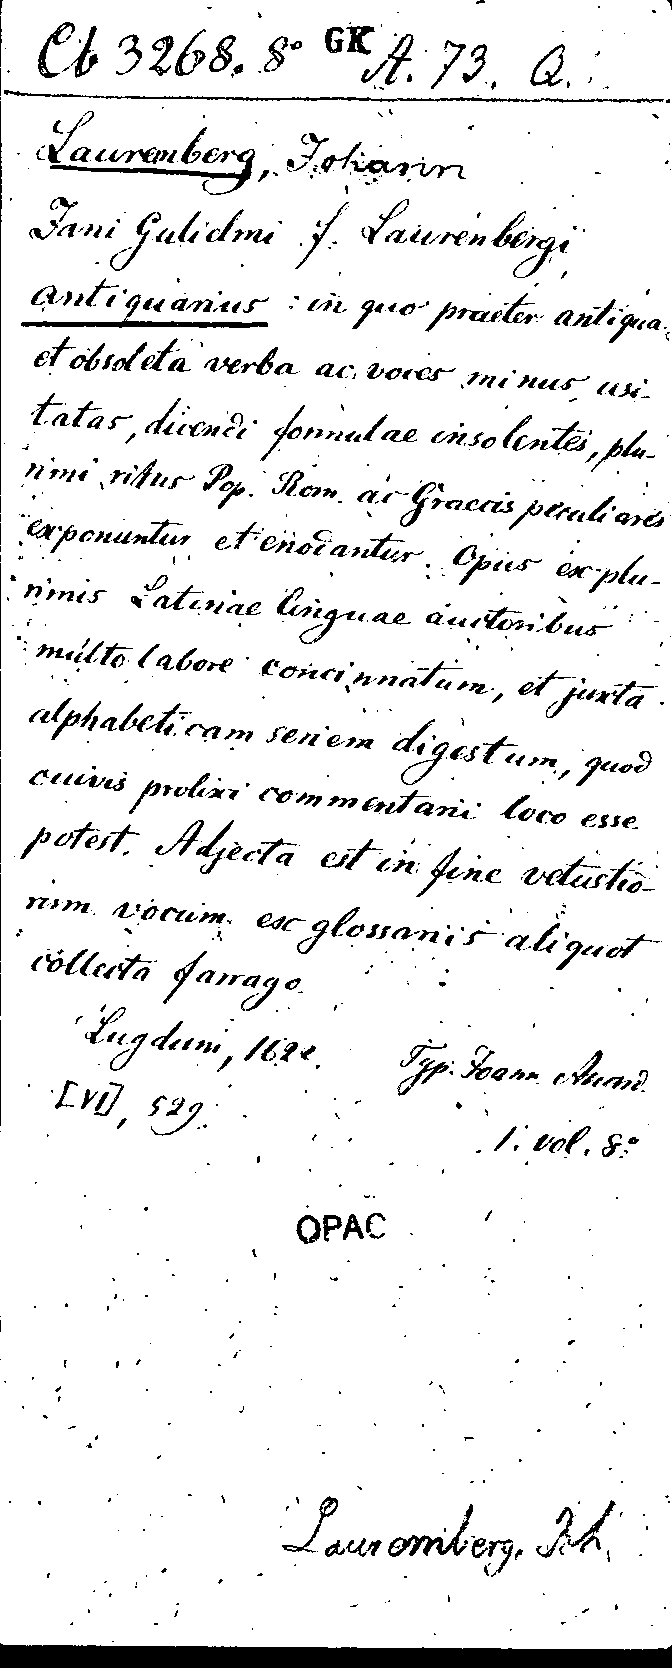 Cb 3268. 8° GK A. 73. Q.
Laurenberg, Johann
Jani Gulielmi f. Laurenbergi
antiquarius : in quo praeter antiqua
et obsoleta verba ac voces minus usi-
tatas, dicendi formulae insolentes, plu-
rimi ritus Pop. Rom. ac Graecis peculiares
exponuntur et enodantur. Opus ex plu-
rimis Latinae linguae auctoribus
multo labore concinnatum, et juxta
alphabeticam seriem digestum, quod
cuivis prolixi commentarii loco esse
potest. Adjecta est in fine vetustio-
rum vocum ex glossariis aliquot
collecta farrago.
Lugduni, 1622. Typ. Joann
[VI], 529. 1. vol. 8°
OPAC
Lauremberg, Joh.